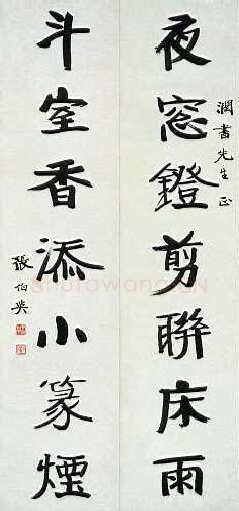 潤書先生正
夜窓鐙剪聯床雨
斗室香添小篆煙
張伯英